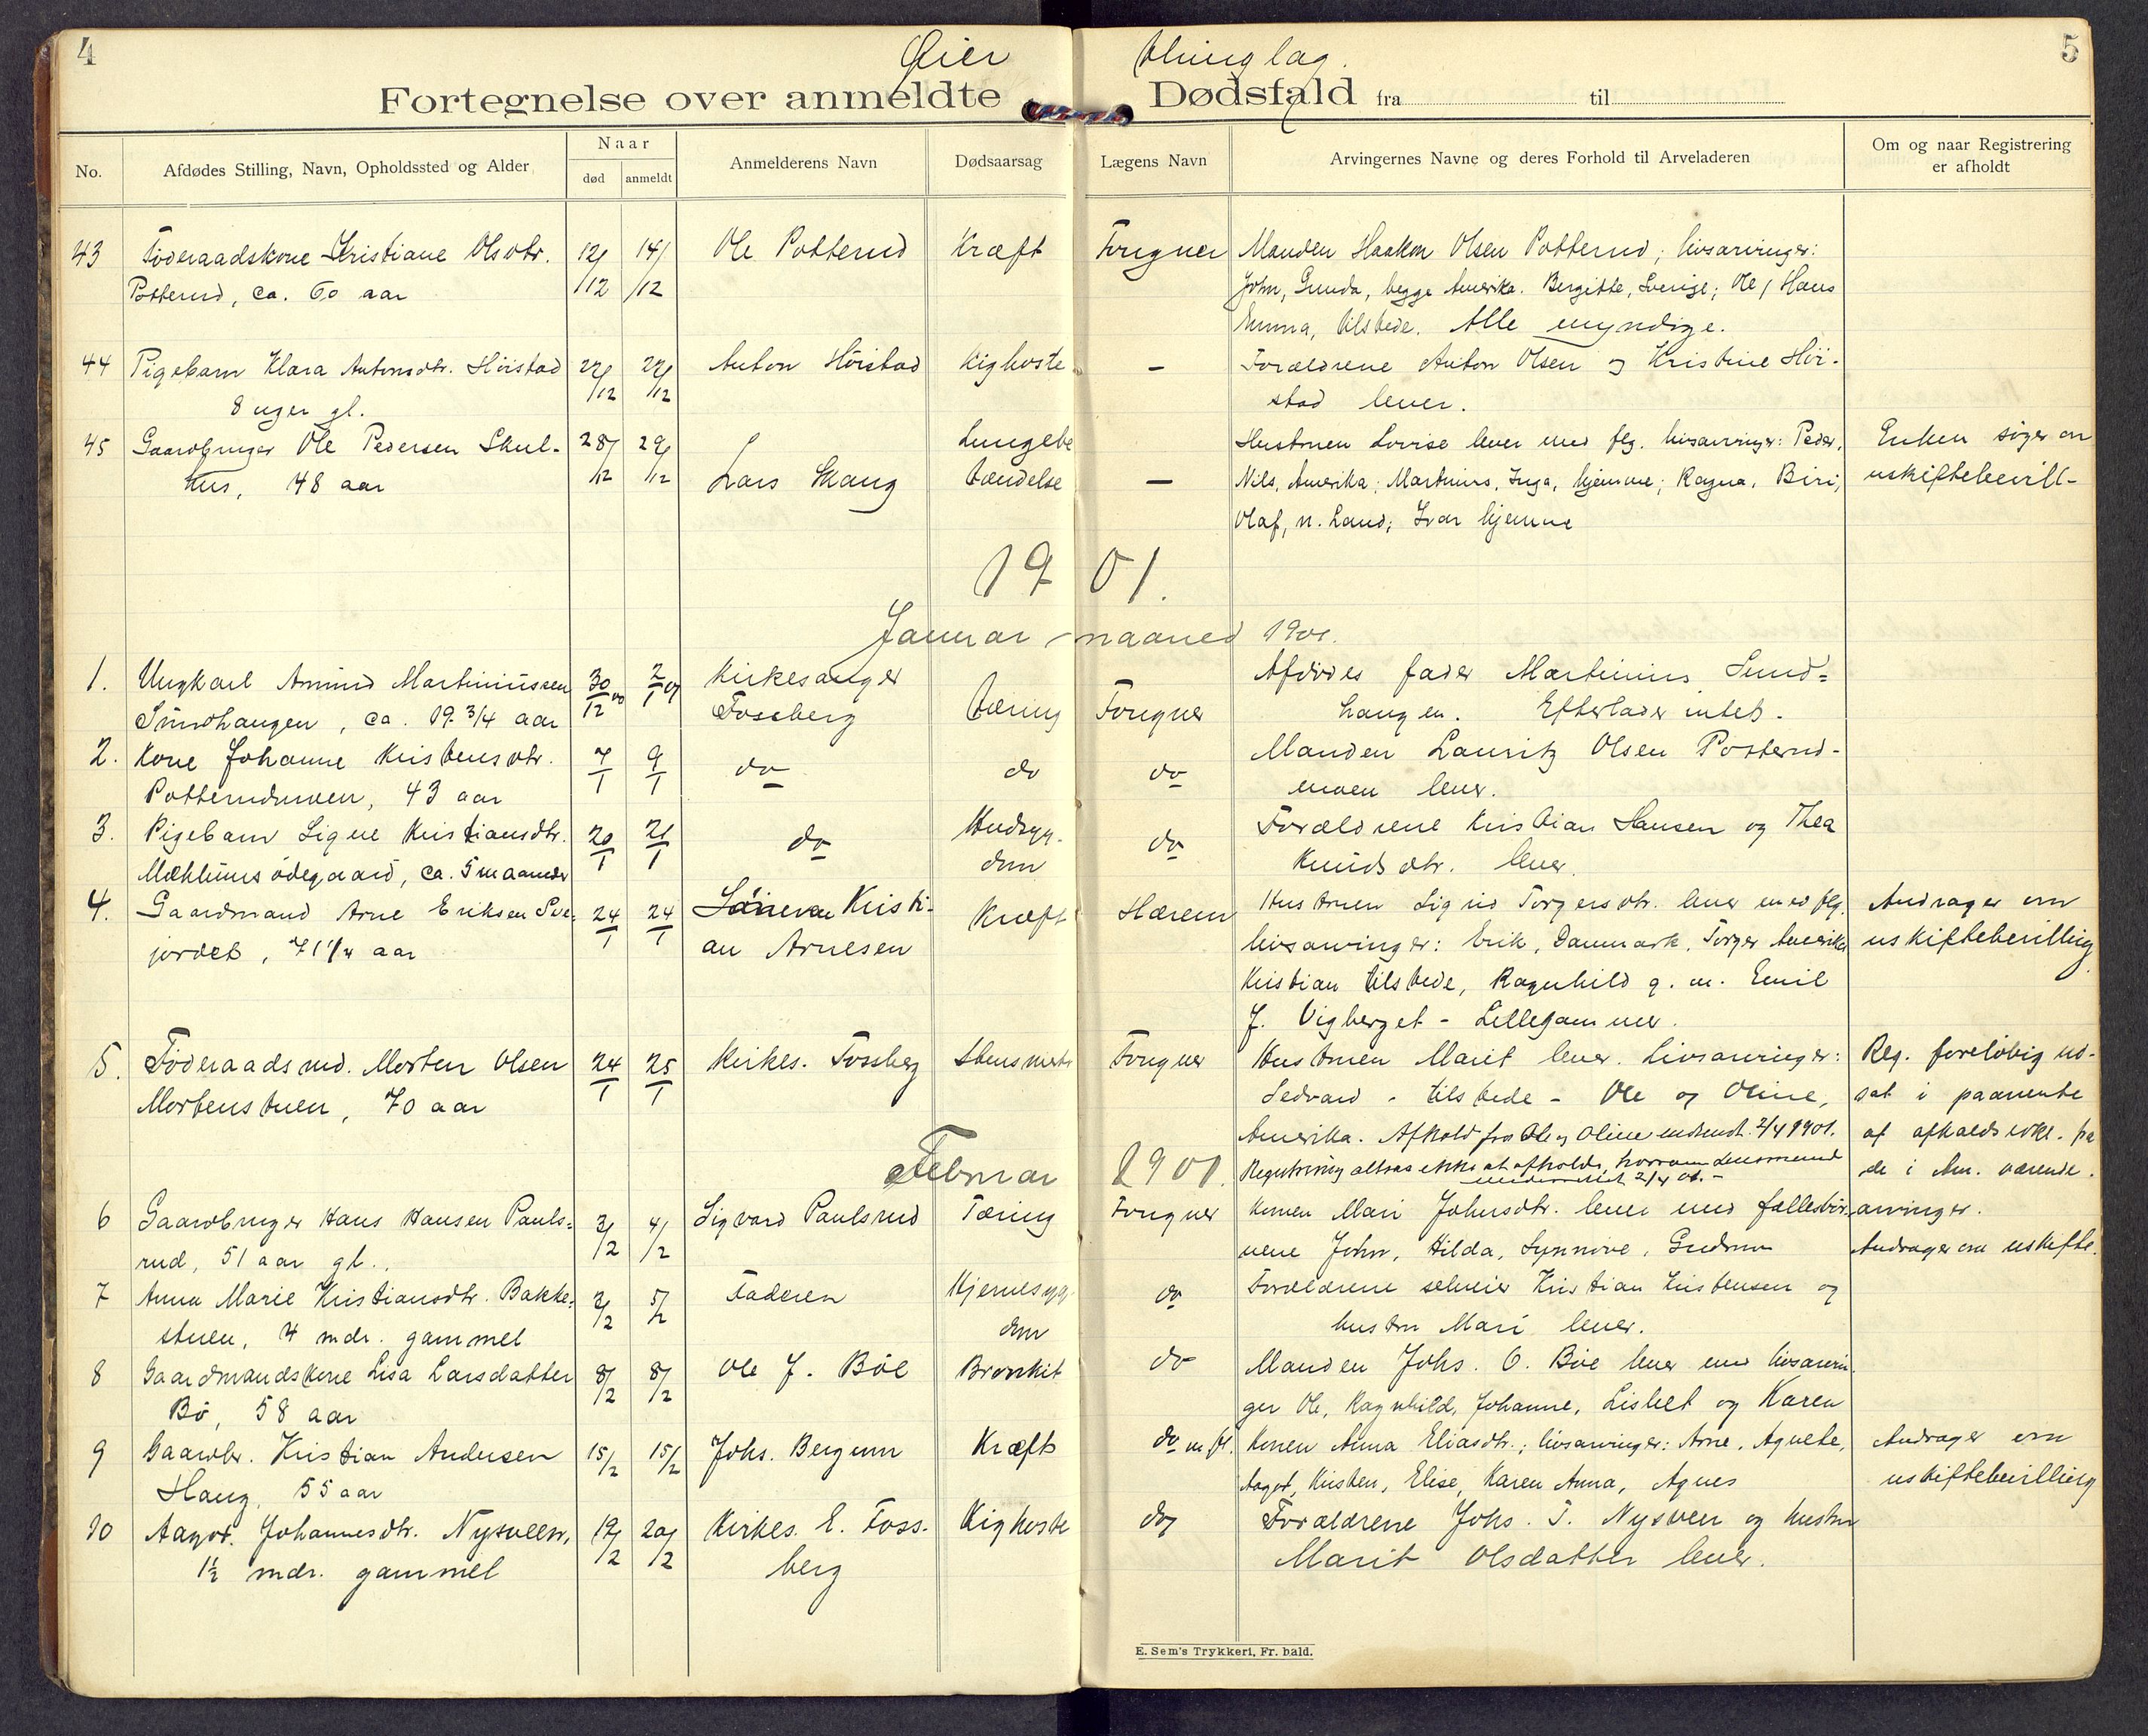 4
Øier thinglag.
5
Fortegnelse over anmeldte Dødsfald fra til
No.
Afdødes Stilling, Navn, Opholdssted og Alder
Naar
død anmeldt
Anmelderens Navn
Dødsaarsag
Lægens Navn
Arvingernes Navne og deres Forhold til Arveladeren
Om og naar Registrering
er afholdt
43 Föderaadskone Kristiane Olsdtr. 12/ 14/ Ole Potterud Kræft Fougner Manden Haakon Olsen Potterud; livsarvinger:
Potterud, ca. 60 aar /12 /12 John, Gunda, begge Amerika. Bergitte, Sverige; Ole, Hans
Emma, tilstede. Alle myndige.
44 Pigebarn Klara Antonsdtr. Höistad 27/ 27/ Anton Höistad Kighoste - Forældrene Anton Olsen og Kristine Höi-
8 uger gl. /12 /12 stad lever.
45 Gaardbruger Ole Pedersen Skul- 28/ 29/ Lungebe Hustruen Lovise lever med flg. livsarvinger: Peder, Enken söger om
hus, 48 aar /12 /12 Lars Skaug tændelse - Nils, Amerika; Martinus, Inga, hjemme; Ragna, Biri, uskiftebevill-
Olaf, n. Land; Ivar hjemme
1901.
Januar maaned 1901.
1. Ungkarl Amund Martiniussen 30/12 00 2/1 01 Kirkesanger Afdödes fader Martinius Sund-
Sundhaugen, ca. 19 3/4 aar Fossberg Tæring Fougner haugen. Efterlader intet.
2. Kone Johanne Kristensdtr. 7/1 9/1 do do do Manden Lauritz Olsen Potterud-
Potterudmoen, 43 aar moen lever.
3. Pigebarn Signe Kristiansdtr. 20/1 21/1 do Hudsyg- do Forældrene Kristian Hansen og Thea
Mæhlumsödegaard, ca. 5 maaneder dom Knudsdtr. lever.
4. Gaardmand Arne Eriksen Sve- 24/1 24/1 Sönnen Kristi- Kræft Hærem Hustruen Sigrid Torgersdtr. lever med flg. Andrager om
jordet, 71 1/4 aar an Arnesen livsarvinger: Erik, Danmark, Torger Amerika uskiftebevilling
Kristian tilstede, Ragnhild g. m. Emil
J. Vigberget - Lillehammer.
5. Föderaadsmd. Morten Olsen 24/1 25/1 Kirkes. Fossberg Fougner Hustruen Marit lever. Livsarvinger: Reg. foreløbig ud-
Mortenstuen, 70 aar Sedvard - tilstede - Ole og Oline, sat i paavente
Amerika. Afkald fra Ole og Oline indsendt 2/4 1901. af afkaldserkl. fra
Registrering altsaa ikke at afholde, hvorom Lensmand de i Am. værende
underrettet 2/4 01. -
Februar 1901.
6 Gaardbruger Hans Hansen Pauls- 3/ 4/ Sigvard Paulsrud Tæring Fougner Konen Mari Johnsdtr. lever med fællesbör- arvinger.
rud, 51 aar gl. /2 /2 nene John, Hilda, Synnöve, Gudrun Andrager om uskifte.
7 Anna Marie Kristiansdtr. Bakke- 3/ 5/ Faderen Hjernesyg- do Forældrene selveier Kristian Kristensen og
stuen, 4 mdr. gammel /2 /2 dom hustru Mari lever.
8 Gaardmandskone Lisa Larsdatter 8/ 8/ Ole J. Böe Bronkit do Manden Johs. O. Böe lever med livsarvin-
Bö, 58 aar /2 /2 ger Ole, Ragnhild, Johanne, Lisbet og Karen
9 Gaardbr. Kristian Andersen 15/2 15/2 Johs. Bergum Kræft do m. fl. Konen Anna Eliasdtr.; livsarvinger: Arne, Agnete, Andrager om
Haug, 55 aar Aagot, Kristen, Elise, Karen Anna, Agnes uskiftebevilling
10 Aagot Johannesdtr. Nysveen, 19/ 20/ Kirkes. E. Foss- Kighoste do, Forældrene Johs. T. Nysveen og hustru
1½ mdr. gammel /2 /2 berg Marit Olsdatter lever.
E. Sem's Trykkeri, Fr. hald.